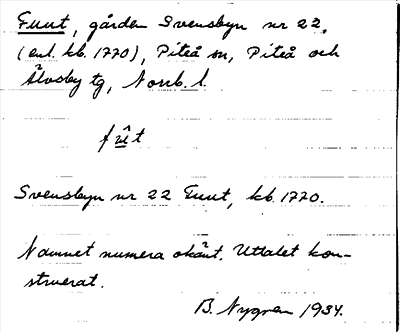 Fuut, gården Svensbyn nr 22,
(enl. kb. 1770), Piteå sn, Piteå och
Älvsby tg, Norrb. l.
fût
Svensbyn nr 22 Fuut, kb. 1770.
Namnet numera okänt. Uttalet kon-
struerat.
B. Nygren 1934.